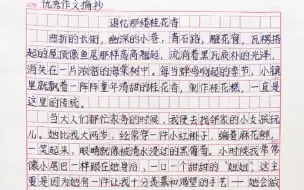 优秀作文摘抄
追忆那缕桂花香
曲折的长街，幽深的小巷，青石路，雕花窗，瓦楞搭
起的屋顶像鱼尾那样高高翘起，流淌着黑瓦质朴的光泽，
消失在一片浓溶的海棠树中，每当蝉鸣响起的季节，小镇
里就飘着一阵阵董年清甜的桂花香，制作桂花糕，一直是
这里的传统。
当大人们都忙农务的时候，我便去找邻家的小女孩玩
儿。她比我大两岁，经常穿一件小红褂子，编着麻花辫，
一笑起来，眼睛就像被清水浸过的黑葡萄。小时候我常常
像小尾巴一样跟在她身后，一口一个甜甜的"姐姐"，这主
要是因为她有一件让我十分羡慕和渴望的手艺——她会做